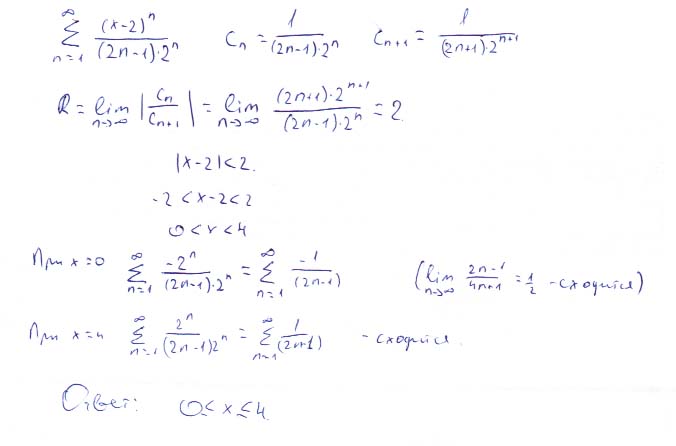 ∑_{n=1}^{∞} (x-2)^n / ((2n-1)·2^n)   C_n = 1 / ((2n-1)·2^n)   C_{n+1} = 1 / ((2n+1)·2^{n+1})
R = lim_{n→∞} |C_n / C_{n+1}| = lim_{n→∞} ((2n+1)·2^{n+1}) / ((2n-1)·2^n) = 2.
|x-2|<2.
-2<x-2<2
0<x<4
При x=0 ∑_{n=1}^{∞} -2^n / ((2n-1)·2^n) = ∑_{n=1}^{∞} -1 / (2n-1)   (lim_{n→∞} (2n-1) / (4n+1) = 1/2 - сходится)
При x=4 ∑_{n=1}^{∞} 2^n / ((2n-1)2^n) = ∑_{n=1}^{∞} 1 / (2n-1) - сходится.
Ответ: 0≤x≤4.